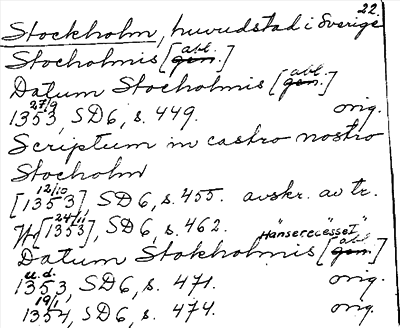 22.
Stockholm, huvudstad i Sverige
Stocholmis [abl. gen.]
Datum Stocholmis [abl. gen.]
1353 27/9, SD6, s. 449. orig.
Scriptum in castro nostro
Stocholm
[1353 12/10], SD6, s. 455. avskr. av tr.
[1353 24/11], SD6, s. 462. "Hanserecesse I"
Datum Stokholmis [abl. gen.]
1353 u.d., SD6, s. 471. orig.
1354 19/1, SD6, s. 474. orig.